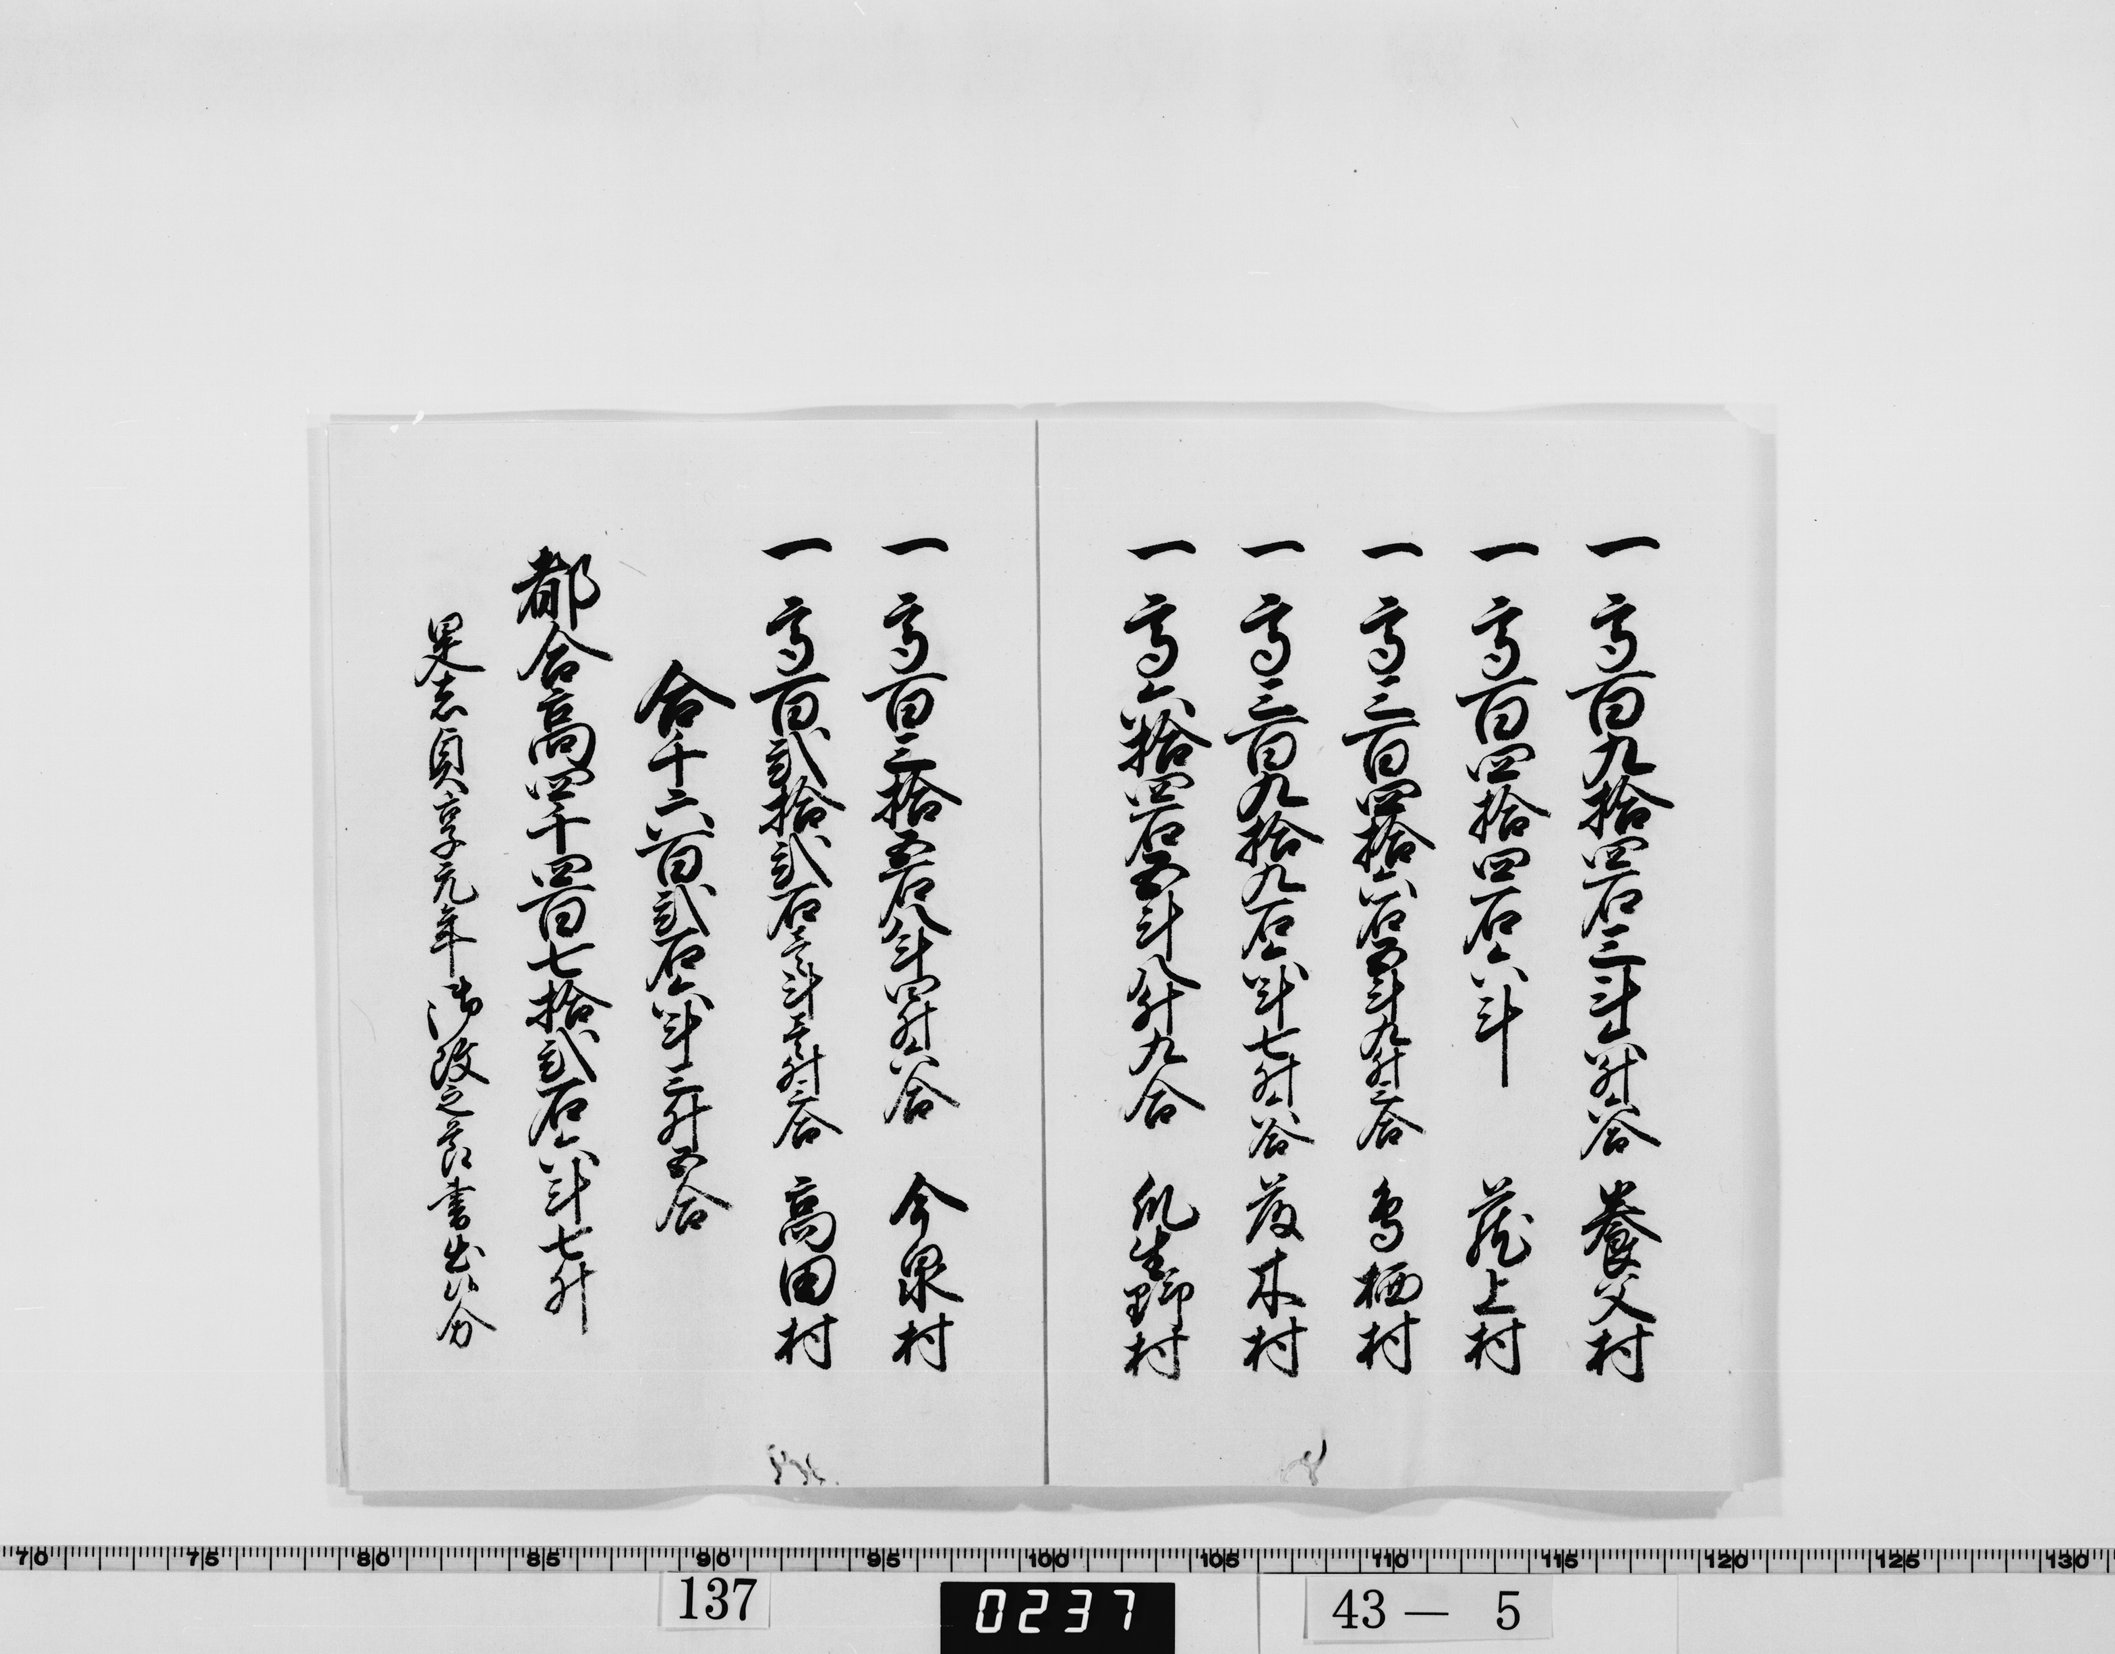 一高百九拾四石三斗六升六合 養父村
一高百四拾四石六斗 蔵上村
一高三百四拾六石五斗九升三合 鳥栖村
一高三百九拾九石六斗七升六合 藤木村
一高六拾四石五斗八升九合 瓜生野村
一高百三拾五石八斗四升六合 今泉村
一高百弐拾弐石壱斗壱升三合 高田村
合千六百弐石六斗三升五合
都合高四千四百七拾弐石六斗七升
是者貞享元年御改之節書出候分
70 75 80 85 90 95 100 105 110 115 120 125 130
137
0237
43 — 5